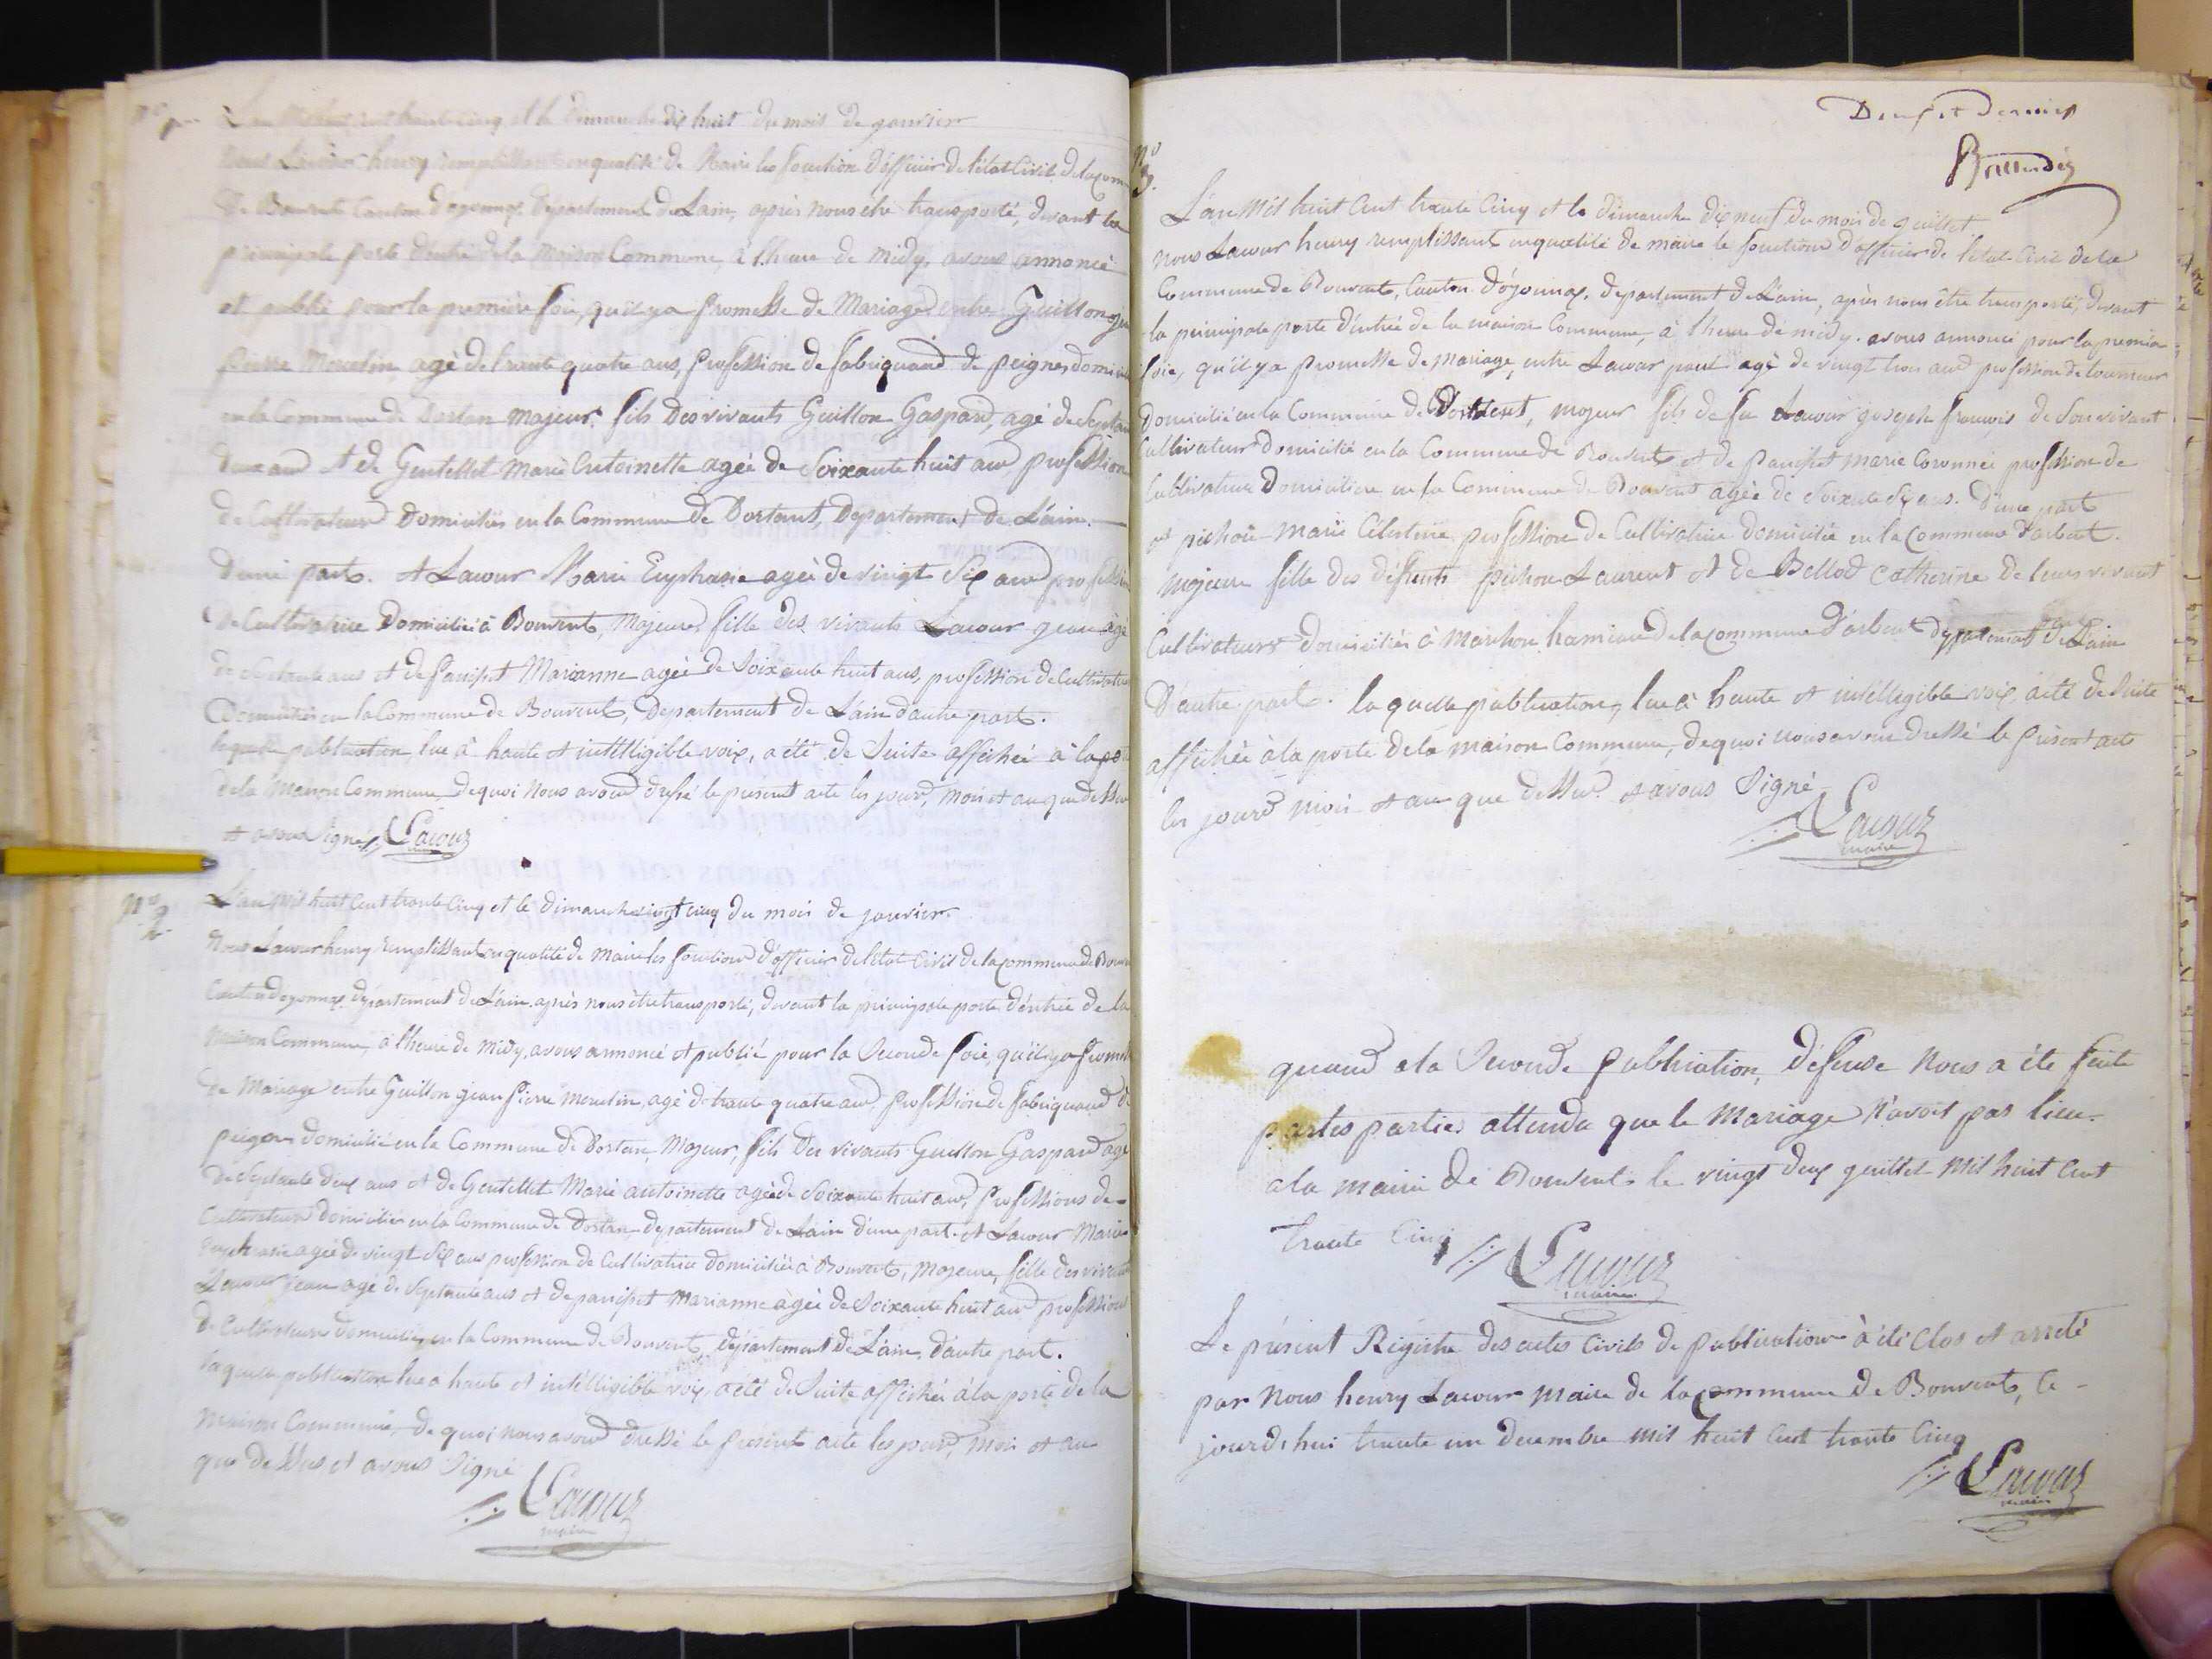 N° 1er
L'an mil huit cent trente cinq et le dimanche dix huit du mois de janvier
nous Lacour henry remplissant en qualité de Maire les fonction d'officier de l'état Civil de la com
de Bouvent Canton d'oyonnax, département de L'ain, après nous être transporté, devant la
principale porte d'entré de la Maison Commune, à l'heure de midy, avons annoncé
et publié pour la première foie, qu'il y a promesse de Mariage entre Guillon jea
pierre Marcelin, agé de trente quatre ans, profession de fabriquand de peignes domicilié
en la Commune de Dortan majeur, fils des vivants Guillon Gaspard, agé de Septan
deux ans et de Gentellet Marie Antoinette agée de Soixante huit ans profession
de Cultivateurs domiciliés en la Commune de Dortant, Département de L'ain.
d'une part. et Lacour Marie Euphrasie agée de vingt Six ans profession
de Cultivatrice Domiciliée à Bouvent, Majeure, fille des vivants Lacour jean agé
de Septante ans et de panisset Marianne agée de Soixante huit ans, profession de Cultivateurs
Domiciliés en la Commune de Bouvent, Département de L'ain d'autre part.
laquelle publication lue à haute et intelligible voix, a été de Suite affichée à la porte
de la Maison Commune, de quoi Nous avons dressé le présent acte les jours, mois et an que dessus
et avons Signé Lacour
N° 2.
L'an mil huit Cent trente Cinq et le dimanche vingt cinq du mois de janvier.
Nous Lacour henry remplissant en qualité de maire les fonctions d'officier de l'état Civil de la commune de Bouven
Canton d'oyonnax, département de L'ain, après nous être transporté, devant la principale porte d'entrée de la
Maison Commune, à l'heure de midy, avons annoncé et publié pour la Seconde foie, qu'il y a promess
de Mariage entre Guillon jean pierre Marcelin, agé de trente quatre ans, profession de fabriquand de
peignes domicilié en la Commune de Dortan, Majeur, fils des vivants Guillon Gaspard agé
de Septante deux ans et de Gentellet Marie antoinette agée de Soixante huit ans, professions de
Cultivateurs domiciliés en la Commune de Dortan département de L'ain d'une part. et Lacour Marie
Euphrasie agée de vingt Six ans profession de Cultivatrice domiciliée à Bouvent, majeure, fille des vivants
Lacour jean agé de Septante ans et de panisset Marianne agée de Soixante huit ans profession
de Cultivateurs domiciliés en la Commune de Bouvent, département de L'ain, d'autre part.
laquelle publication lue a haute et intelligible voix, a été de Suite affichée à la porte de la
Maison Commune, de quoi nous avons dressé le présent acte les jours, mois et an
que dessus et avons Signé
Lacour
maire
Deux et dernier
N° 3.
L'an Mil huit Cent trente Cinq et le dimanche dix neuf du mois de juillet
nous Lacour henry remplissant en qualité de maire le fonctions d'officier de l'état Civil de la
Commune de Bouvent, Canton d'oyonnax, département de L'ain, après nous être transporté, devant
la principale porte d'entrée de la maison Commune, à l'heure de midy. avons annoncé pour la premier
foie, qu'il y a promesse de mariage, entre Lacour paul agé de vingt trois ans profession de tourneur
domicilié en la Commune de Dortent, majeur fils de feu Lacour joseph françois de Son vivant
Cultivateur domicilié en la Commune de Bouvent et de panisset marie Coronnée profession de
Cultivatrice Domiciliée en la Commune de Bouvent agée de Soixante Six ans. d'une part
et pichon marie Célestine profession de Cultivatrice domiciliée en la Commune d'arbent.
majeure fille des défunts pichon Laurent et de Bellod Catherine de leurs vivant
Cultivateurs domiciliés à Marchon hameau de la commune d'arbent département de L'ain
D'autre part. laquelle publication, lue à haute et intelligible voix, a été de Suite
affichée à la porte de la maison Commune, de quoi nous avons dressé le présent acte
les jours mois et an que dessus. et avons Signé
Lacour
maire
quand a la Seconde publication, déffense Nous a été faite
par les parties attendu que le Mariage n'avoit pas lieu.
a la mairie de Bouvent le vingt deux juillet Mil huit Cent
trente Cinq
Lacour
maire
Le présent Régistre des actes Civils de publications à été Clos et arreté
par Nous henry Lacour Maire de la Commune de Bouvent, Ce
jourd'hui trente un decembre Mil huit Cent trente Cinq
Lacour
maire